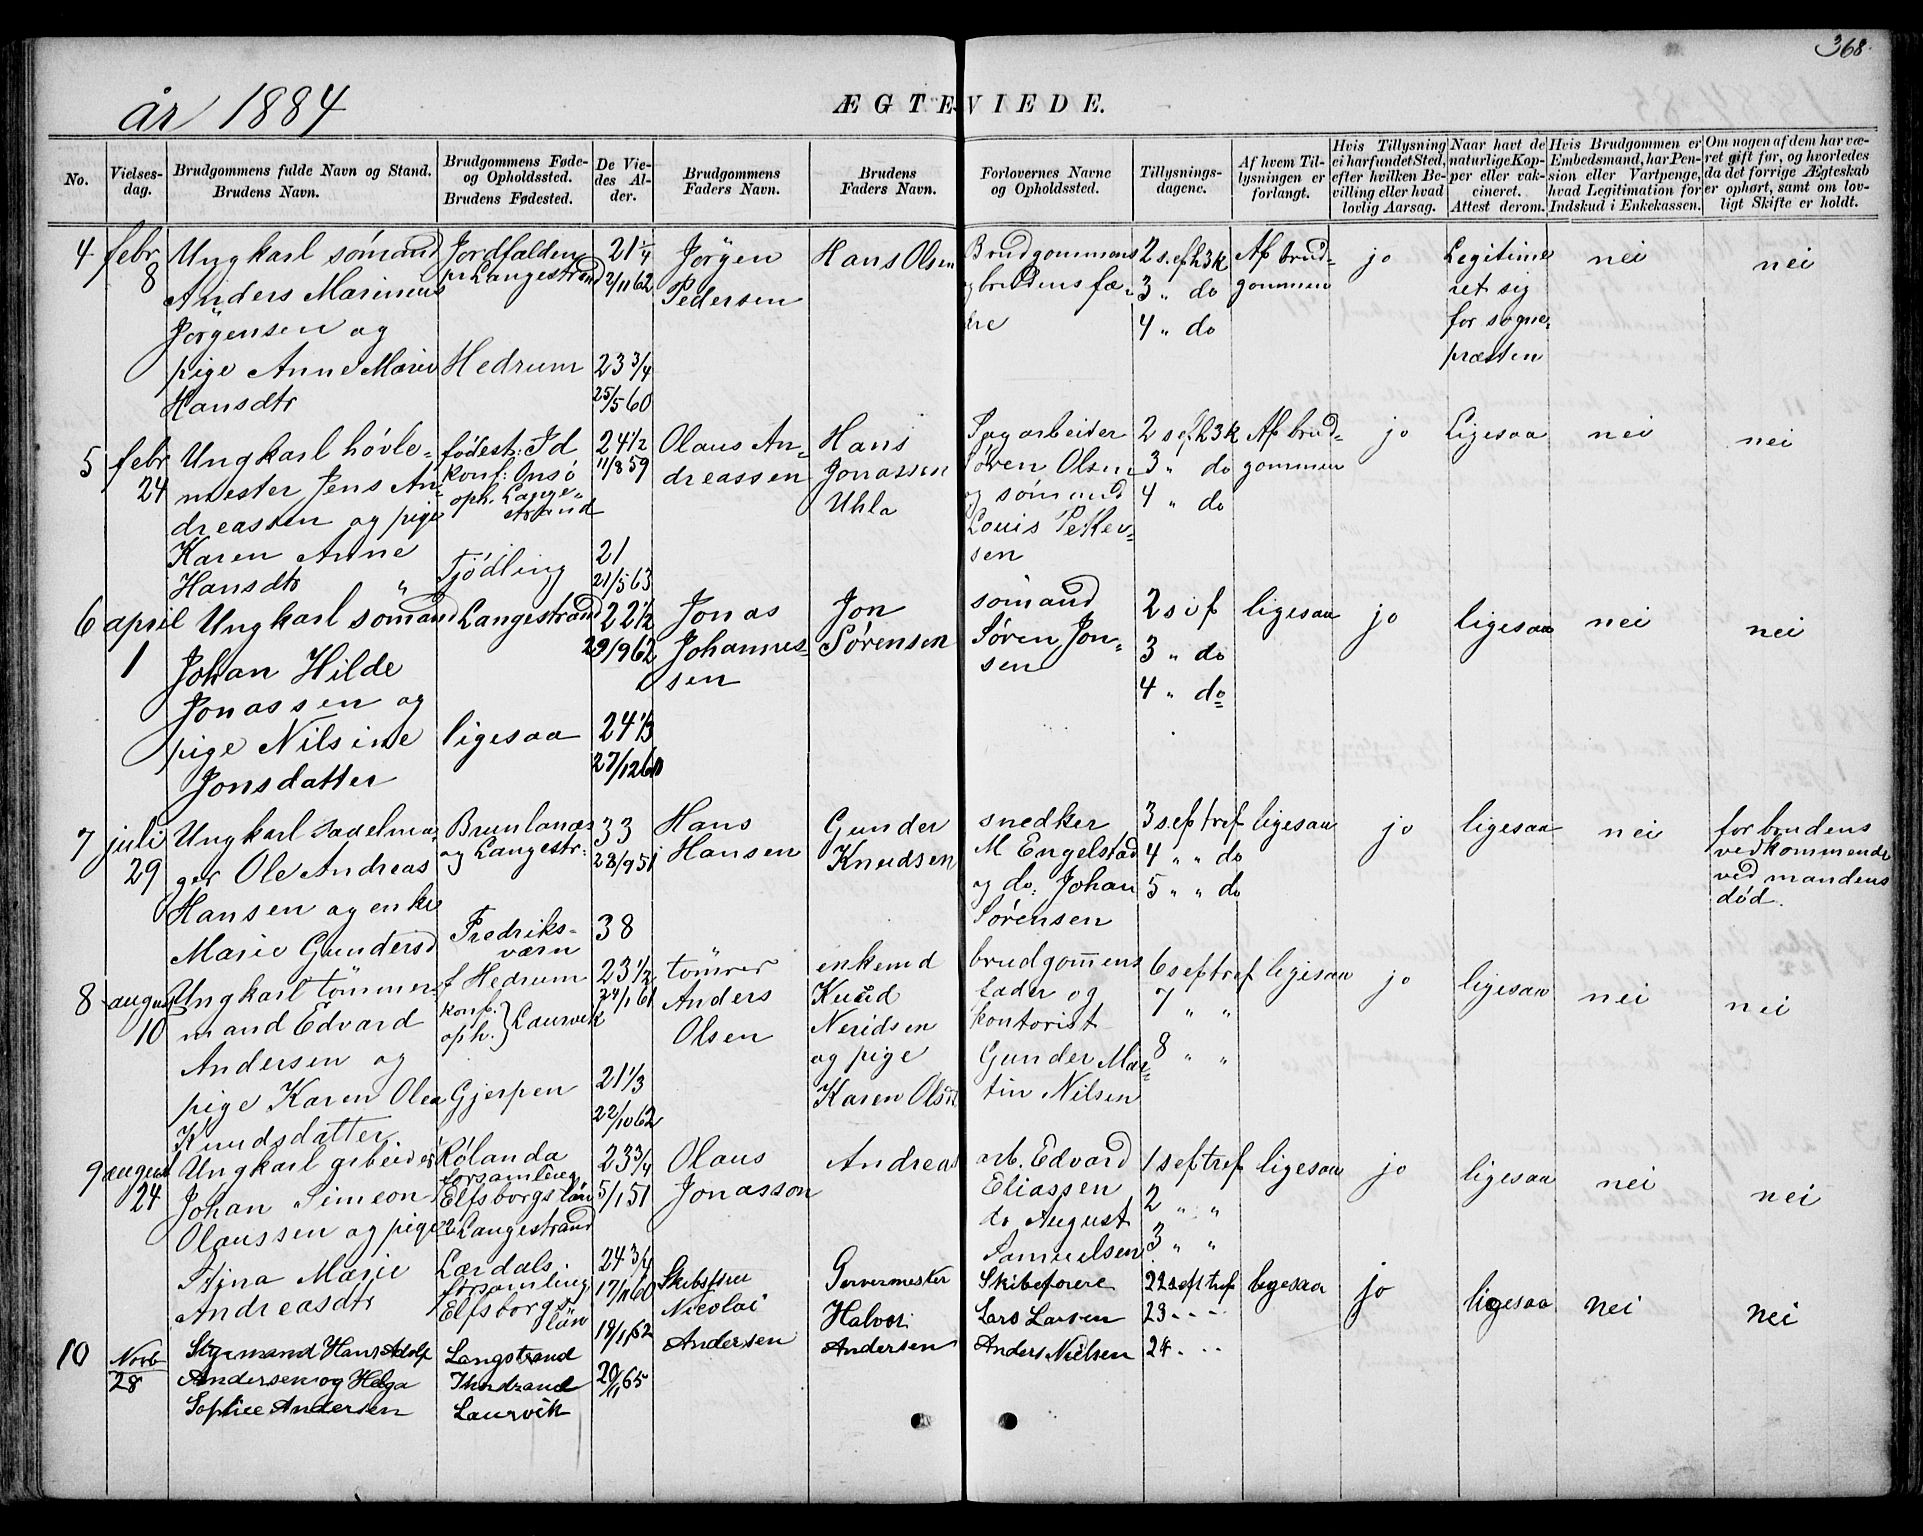 368.
år 1884
ÆGTEVIEDE.
No.
Vielses-
dag.
Brudgommens fulde Navn og Stand.
Brudens Navn.
Brudgommens Føde-
og Opholdssted.
Brudens Fødested.
De Vie-
des Al-
der.
Brudgommens
Faders Navn.
Brudens
Faders Navn.
Forlovernes Navne
og Opholdssted.
Tillysnings-
dagene.
Af hvem Til-
lysningen er
forlangt.
Hvis Tillysning
ei har fundet Sted,
efter hvilken Be-
villing eller hvad
lovlig Aarsag.
Naar havt de
naturlige Kop-
per eller vak-
cineret.
Attest derom.
Hvis Brudgommen er
Embedsmand, har Pen-
sion eller Vartpenge,
hvad Legitimation for
Indskud i Enkekassen.
Om nogen af dem har væ-
ret gift før, og hvorledes
da det forrige Ægteskab
er ophørt, samt om lov-
ligt Skifte er holdt.
4
febr
8
Ungkarl sømand
Anders Marinius
Jörgensen og
pige Anne Marie
Hansdtr
Jordfalden
pr Langestrand
Hedrum
21 1/4
2/11 62
23 3/4
25/5 60
Jörgen
Pedersen
Hans Olsen
Brudgommens
og brudens fæ-
dre
2 s. ef h3k
3 " do
4 " do
Af brud-
gommen
jo
Legitime
ret sig
for sogne-
præsten
nei
nei
5
febr
24
Ungkarl høvle-
mester Jens An-
dreassen og pige
Karen Anne
Hansdtr "
fødest: Id
konf: Onsö
oph. Lange-
strand
Tjödling
24 1/2
11/8 59
21
21/5 63
Olaus An-
dreassen
Hans
Jonassen
Uhla
Sagarbeider
Søren Olsen
og sömand
Louis Petter-
sen
2 s ef h3k
3 " do
4 " do
Af brud-
gommen
jo
Ligesaa
nei
nei
6
april
1
Ungkarl sømand
Johan Hilde
Jonassen og
pige Nilsine
Jonsdatter
Langestrand
ligesaa
22 1/2
29/9 62
24 1/3
27/12 60
Jonas
Johannes-
sen
Jon
Sørensen
sømand
Søren Jon-
sen
2 s i f
3 " do
4 " do
ligesaa
jo
ligesaa
nei
nei
7
juli
29
Ungkarl sadelma-
ger Ole Andreas
Hansen og enke
Marie Gundersd
Brunlanæs
og Langestr:
Fredriks-
værn
33
23/9 51
38
Hans
Hansen
Gunder
Knudsen
snedker
M Engelstad
og do: Johan
Sørensen
3 s ef tref
4 " " do
5 " " do
ligesaa
jo
ligesaa
nei
for brudens
vedkommende
ved mandens
død.
8
august
10
Ungkarl tömmer-
mand Edvard
Andersen og
pige Karen Olea
Knudsdatter
f Hedrum
konf.
oph. } Laurvik
Gjerpen
23 1/2
24/1 61
21 1/3
22/10 62
tömrer
Anders
Olsen
enkemd
Knud
Neridsen
og pige
Karen Olsd
brudgommens
fader og
kontorist
Gunder Mar-
tin Nilsen
6 s ef tref
7 " "
8 " "
ligesaa
jo
ligesaa
nei
nei
9
august
24
Ungkarl arbeider
Johan Simeon
Olaussen og pige
Stina Marie
Andreasdtr
Rölanda
forsamling
Elfsborgs län
Langestrand
Lærdals
forsamling
Elfsborgs
län
23 3/4
5/1 51
24 3/4
17/1 60
Olaus
Jonasson
Andreas
arb. Edvard
Eliassen
do August
Samuelsen
1 s ef tref
2 " "
3 " "
ligesaa
jo
ligesaa
nei
nei
10
Novb
28
Styrmand Hans Adolf
Andersen og Helga
Sophie Andersen
Langstrand
Laurvik
19/11 62
20/11 65
Nicolai
Andersen
Garvermester
Halvor
Andersen
Skibsförere
Lars Larsen
Anders Nielsen
22 s eft tref
23 - - -
24 - - -
ligesaa
jo
ligesaa
nei
nei